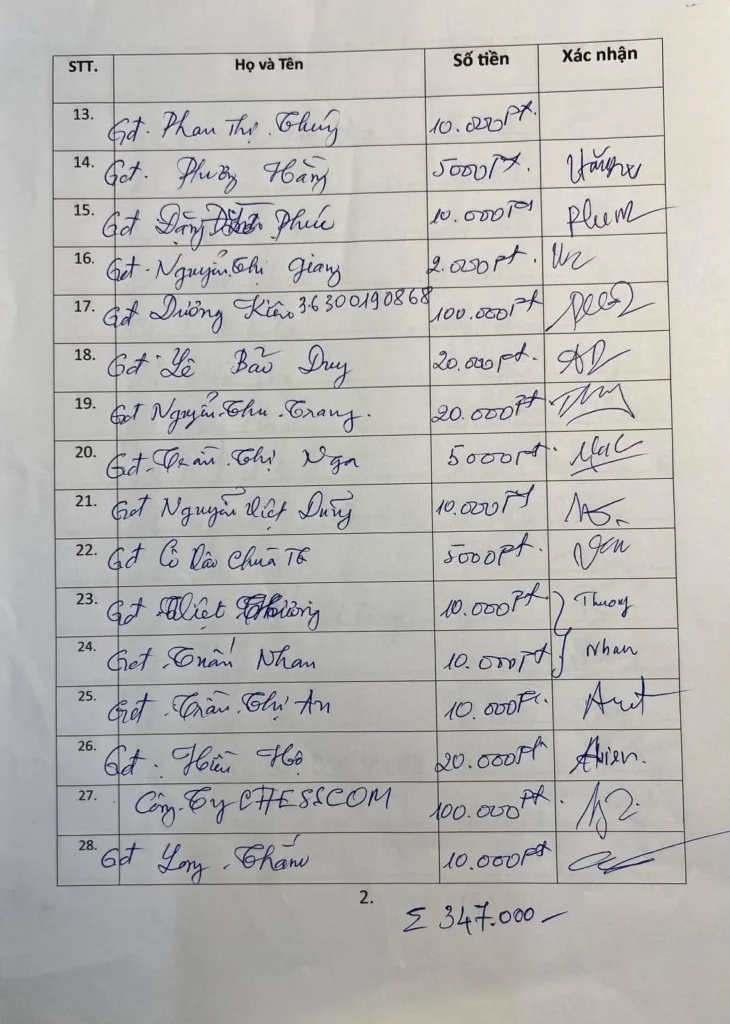 STT. Họ và Tên Số tiền Xác nhận
13. Gđ. Phan Thị Thúy 10.000Ft.
14. Gđ. Phượng Hằng 5000Ft. Hằng
15. Gđ Đặng Phúc 10.000Ft
16. Gđ. Nguyễn Thị Giang 2.000Ft.
17. Gđ Dương Kiên 36300190868 100.000Ft
18. Gđ. Lê Bảo Duy 20.000Ft.
19. Gđ Nguyễn Thu Trang. 20.000Ft
20. Gđ. Trần Thị Nga 5000Ft.
21. Gđ Nguyễn Việt Dũng 10.000Ft
22. Gđ Cô Chùa 5000Ft.
23. Gđ Việt 10.000Ft Thuong
24. Gđ. Tuấn Nhan 10.000Ft Nhan
25. Gđ. Trần Thị An 10.000Ft.
26. Gđ. Hiền Hộ 20.000Ft Hien.
27. Công Ty CHESSCOM 100.000Ft.
28. Gđ Long Thắm 10.000Ft
2.
Σ 347.000 –